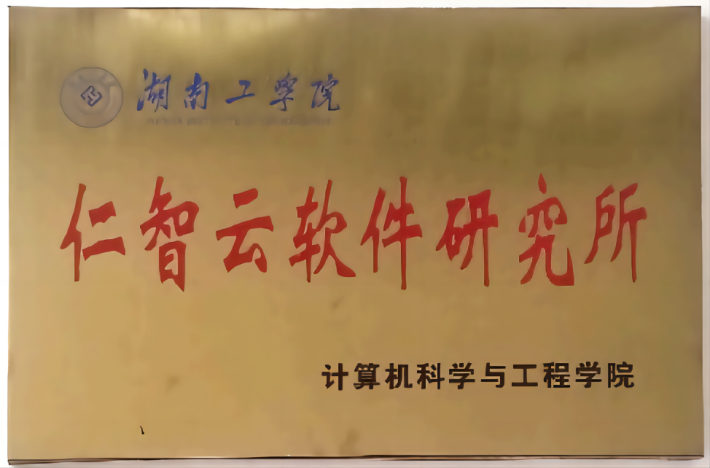 湖南工学院
仁智云软件研究所
计算机科学与工程学院